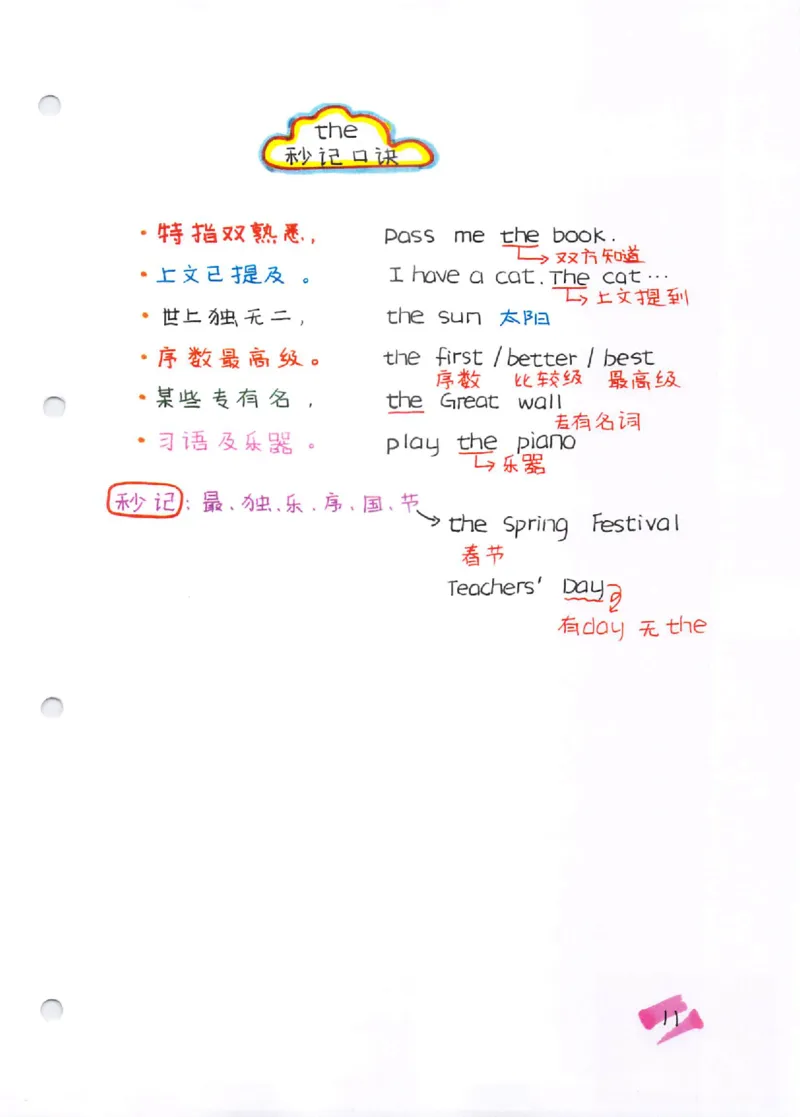 the
秒记口诀
·特指双熟悉, pass me the book.
双方知道
·上文已提及。 I have a cat. The cat…
上文提到
·世上独无二, the sun 太阳
·序数最高级。 the first / better / best
序数 比较级 最高级
·某些专有名, the Great wall
专有名词
·习语及乐器。 play the piano
乐器
秒记:最、独、乐、序、国、节
the Spring Festival
春节
Teachers' Day
有day 无 the
11